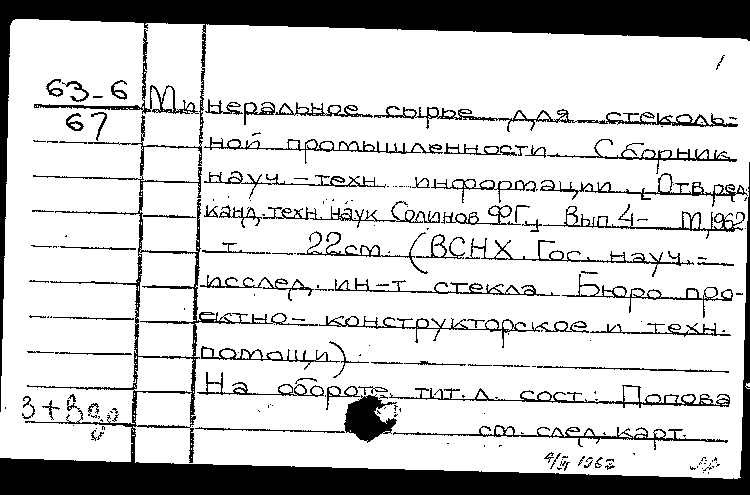 1
63-6
67
Минеральное сырье для стеколь=
ной промышленности. Сборник
науч.-техн. информации. [Отв. ред.
канд. техн. наук Солинов Ф.Г.] Вып. 4- М, 1962
т. 22см. (ВСНХ. Гос. науч.=
исслед. ин-т стекла. Бюро про-
ектно-конструкторское и техн.
помощи)
На обороте тит. л. сост.: Попова
см. след. карт.
3+3
4/III 1963